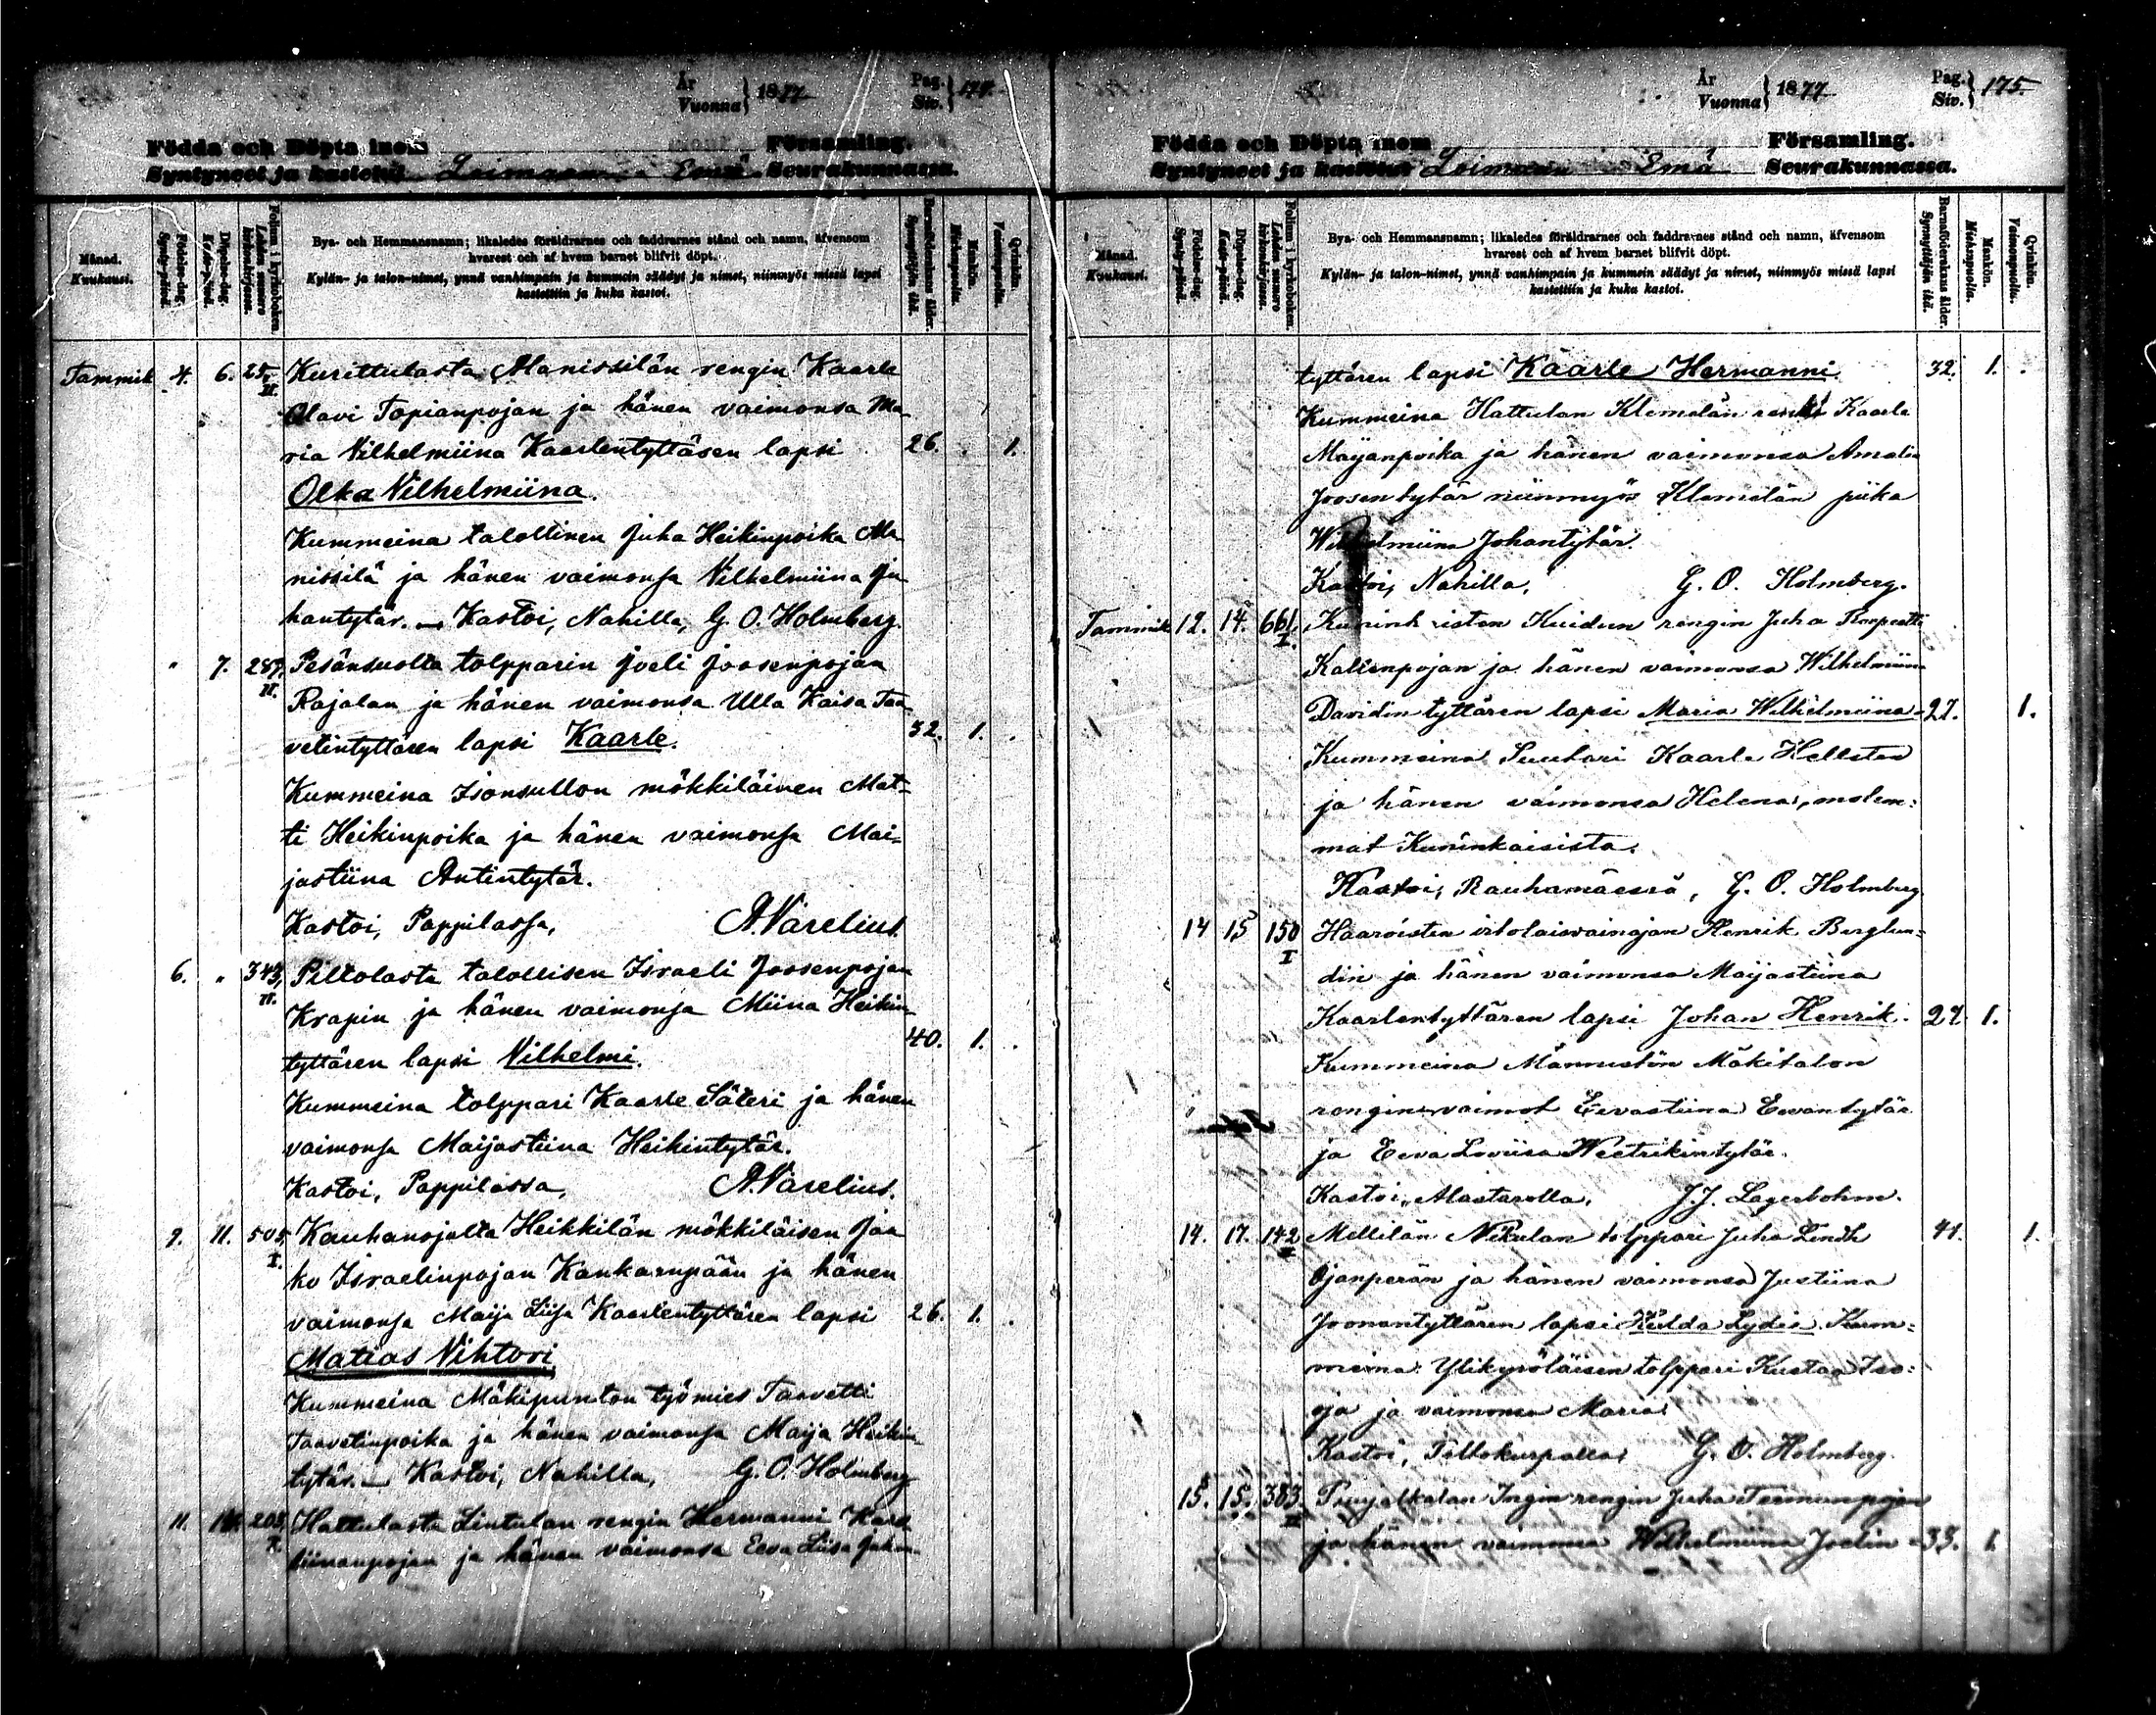 År
Vuonna } 1877
Pag.
Siv. } 174.
Födda och Döpta inom Församling.
Syntyneet ja kastetut Loimaan Emä Seurakunnassa.
Månad.
Kuukausi.
Födelse-dag.
Synty-päivä.
Döpelse-dag.
Kaste-päivä.
Folium i kyrkoboken.
Lehden numero
kirkonkirjassa.
Bya- och Hemmansnamn; likaledes föräldrarnes och faddrarnes stånd och namn, äfvensom
hvarest och af hvem barnet blifvit döpt.
Kylän- ja talon-nimet, ynnä vanhimpain ja kummein säädyt ja nimet, niinmyös missä lapsi
kastettiin ja kuka kastoi.
Barnaföderskans ålder.
Synnyttäjän ikä.
Mankön.
Miehenpuolia.
Qvinkön.
Vaimonpuolia.
Tammik 4. 6. 25. II. Kurittulasta Manissilän rengin Kaarle
Olavi Tapianpojan ja hänen vaimonsa Ma-
ria Vilhelmiina Kaarlentyttären lapsi 26. 1.
Olka Vilhelmiina.
Kummeina talollinen Juha Heikinpoika Ma-
nissilä ja hänen vaimonsa Vilhelmiina Ju-
hantytär. — Kastoi, Nahilla, G. O. Holmberg.
" 7. 289. II. Pesänsuolta tolpparin Joeli Joosenpojan
Rajalan ja hänen vaimonsa Ulla Kaisa Taa-
vetintyttären lapsi Kaarle. 32. 1.
Kummeina Isonsullon mökkiläinen Mat-
ti Heikinpoika ja hänen vaimonsa Mai-
jastiina Antintytär.
Kastoi, Pappilassa, A. Varelius.
6. " 343, II. Piltolasta talollisen Israeli Joosenpojan
Krapin ja hänen vaimonsa Miina Heikin-
tyttären lapsi Vilhelmi. 40. 1.
Kummeina tolppari Kaarle Säteri ja hänen
vaimonsa Maijastiina Heikintytär.
Kastoi, Pappilassa, A. Varelius.
9. 11. 505, I. Kauhanojalta Heikkilän mökkiläisen Jaa-
ko Israelinpojan Kankarepään ja hänen
vaimonsa Maija Liisa Kaarlentyttären lapsi 26. 1.
Matias Vihtori
Kummeina Mäkipunton työmies Taavetti
Taavetinpoika ja hänen vaimonsa Maija Heikin-
tytär. — Kastoi, Nahilla, G. O. Holmberg
11. 14. 203, Hattulasta Lintulan rengin Hermanni Karo-
liinanpojan ja hänen vaimonsa Eeva Liisa Juhan-
År
Vuonna } 1877
Pag.
Siv. } 175.
Födda och Döpta inom Församling.
Syntyneet ja kastetut Loimaan Emä Seurakunnassa.
Månad.
Kuukausi.
Födelse-dag.
Synty-päivä.
Döpelse-dag.
Kaste-päivä.
Folium i kyrkoboken.
Lehden numero
kirkonkirjassa.
Bya- och Hemmansnamn; likaledes föräldrarnes och faddrarnes stånd och namn, äfvensom
hvarest och af hvem barnet blifvit döpt.
Kylän- ja talon-nimet, ynnä vanhimpain ja kummein säädyt ja nimet, niinmyös missä lapsi
kastettiin ja kuka kastoi.
Barnaföderskans ålder.
Synnyttäjän ikä.
Mankön.
Miehenpuolia.
Qvinkön.
Vaimonpuolia.
tyttären lapsi Kaarle Hermanni. 32. 1.
Kummeina Hattulan Klemelän renki Kaarle
Maijanpoika ja hänen vaimonsa Amalia
Joosentytär niinmyös Klemelän piika
Wilhelmiina Johantytär.
Kastoi, Nahilla, G. O. Holmberg.
Tammik 12. 14. 661, I. Kuninkoisten Kuidun rengin Juha
Kallenpojan ja hänen vaimonsa Wilhelmiina
Davidintyttären lapsi Maria Wilhelmiina 27. 1.
Kummeina Suutari Kaarle Hellsten
ja hänen vaimonsa Helena, molem-
mat Kuninkaisista.
Kastoi, Rauhamäessä, G. O. Holmberg
14 15 150 I Haaroisten itsolaisvainajan Henrik Berglun-
din ja hänen vaimonsa Maijastiina
Kaarlentyttären lapsi Johan Henrik. 27. 1.
Kummeina Männistön Mäkitalon
rengin vaimot Eevastiina Eevantytär
ja Eeva Loviisa Weetrikintytär.
Kastoi, Alastarolla, J. J. Lagerbohm.
14. 17. 142 II Mellilän Nikulan tolppari Juha Lindh 41. 1.
Ojanperän ja hänen vaimonsa Justiina
Joonantyttären lapsi Hilda Lydia. Kum-
meina: Ylikyröläisen tolppari Kustaa Iso-
oja ja vaimonsa Maria.
Kastoi, Tiltokurpalla, G. O. Holmberg.
15. 15. 383. II Ingin rengin Juha
ja hänen vaimonsa Wilhelmiina Joelin- 33. 1